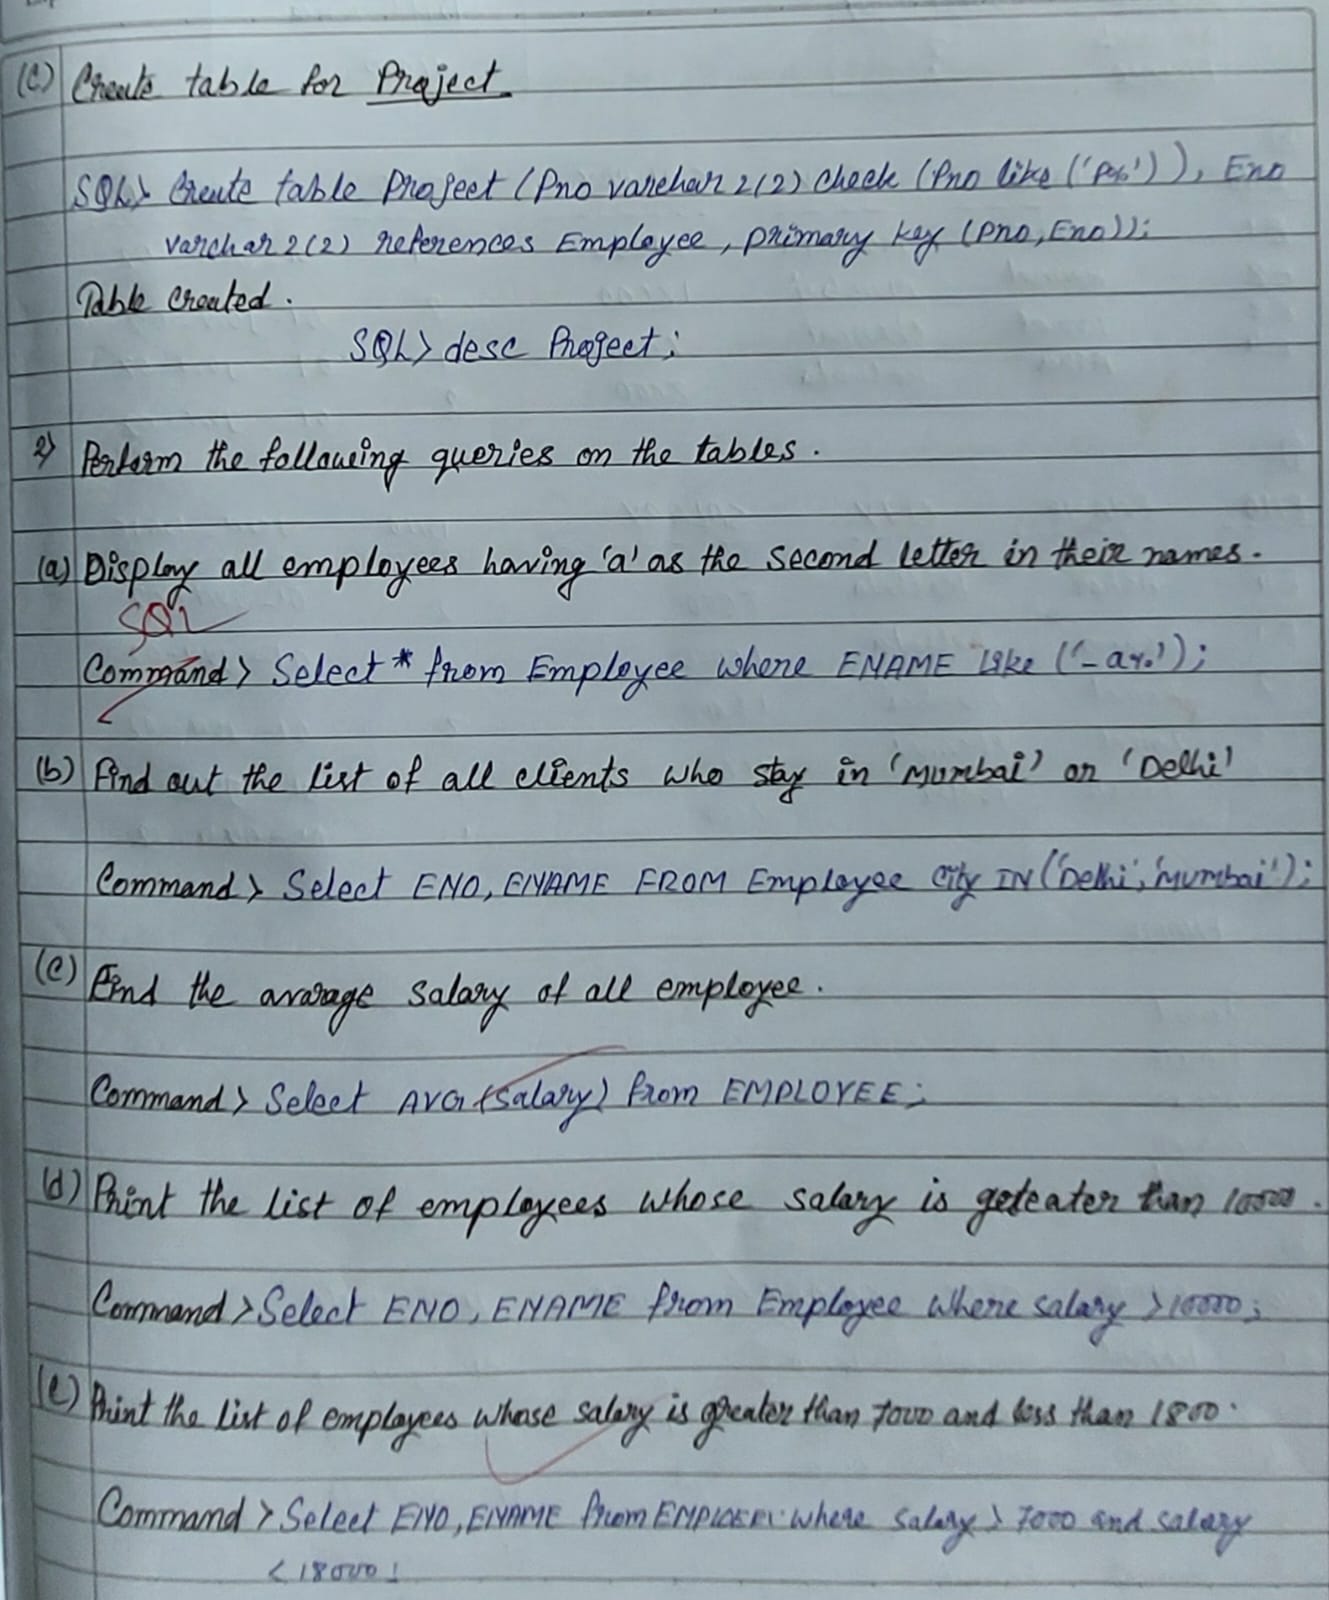 (C) Create table for Project.
SQL> Create table Project (Pno varchar2(2) check (Pno like ('P%')), Eno
varchar2(2) references Employee, primary key (pno, Eno));
Table created.
SQL> desc Project;
2) Perform the following queries on the tables.
(a) Display all employees having 'a' as the second letter in their names.
SQL
Command> Select * from Employee where ENAME like ('_a%');
(b) Find out the list of all clients who stay in 'Mumbai' or 'Delhi'
Command> Select ENO, ENAME FROM Employee City IN ('Delhi', 'Mumbai');
(c) Find the avarage salary of all employee.
Command> Select AVG (salary) from EMPLOYEE;
(d) Print the list of employees whose salary is geteater than 10000.
Command> Select ENO, ENAME from Employee where salary > 10000;
(e) Print the list of employees whose salary is greater than 7000 and less than 1800.
Command> Select ENO, ENAME from where salary > 7000 and salary
< 18000;